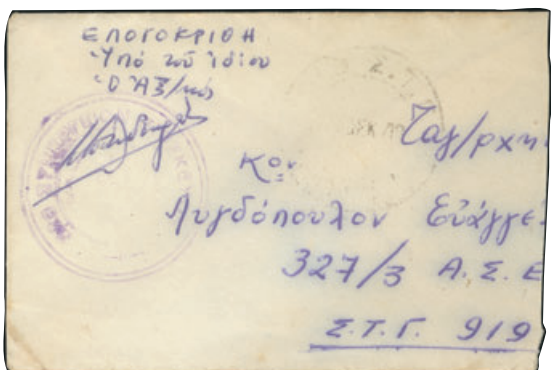 ΕΛΟΓΟΚΡΙΘΗ
Ὑπό τοῦ ἰδίου
Ὁ Ἀξ/κός
Ταγ/ρχη
Κον
Λυγδόπουλον Εὐάγγε
327/3 Α.Σ.Ε
Σ.Τ.Γ. 919